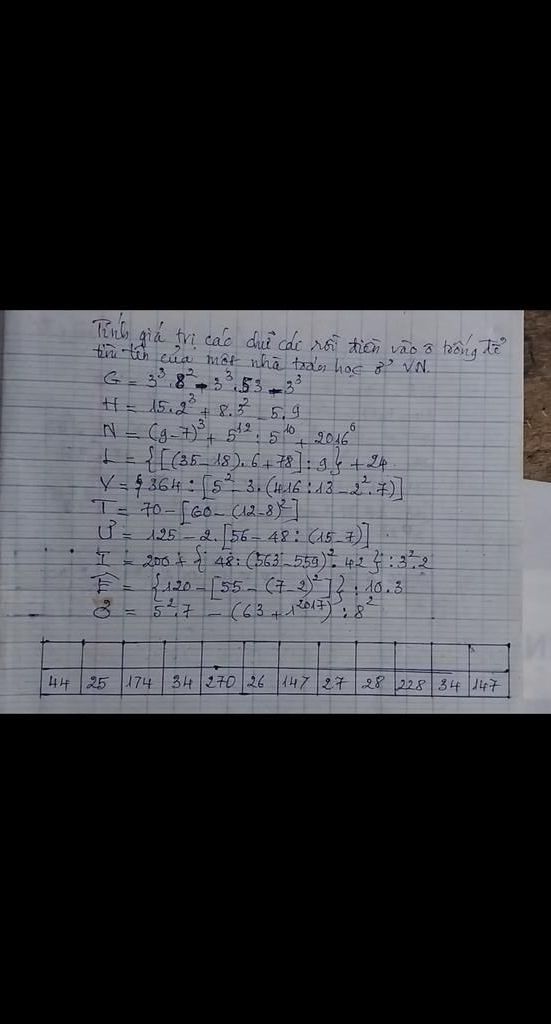 Tính giá trị các chữ cái rồi điền vào ô trống để
tìm tên của một nhà toán học ở VN.
G = 3³.8² - 3³.53 - 3³
H = 15.2³ + 8.3² - 5.9
N = (9-7)³ + 5¹² : 5¹⁰ + 2016⁰
L = {[(35-18).6+78]:9} + 24
V = 364 : [5² - 3.(416:13 - 2².7)]
T = 70 - [60 - (12-8)²]
Ư = 125 - 2.[56 - 48 : (15-7)]
I = 200 + {48:(563-559)².42} : 3².2
Ê = {120 - [55 - (7-2)²]} : 10.3
Ở = 5².7 - (63 + 1²⁰¹⁷) : 8²
44 25 174 34 270 26 147 27 28 228 34 147